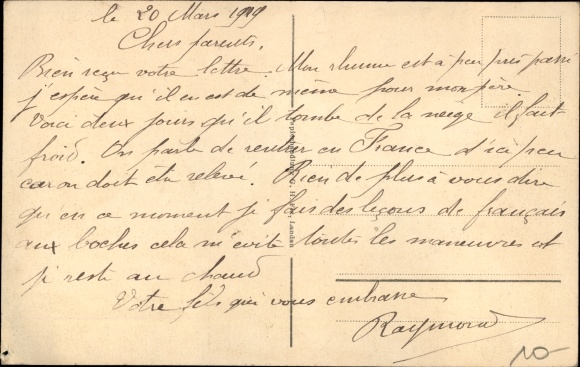 le 20 Mars 1919
Chers parents,
Bien reçu votre lettre. Mon rhume est à peu près passé
j'espère qu'il en est de même pour mon père.
Voici deux jours qu'il tombe de la neige il fait
froid. On parle de rentrer en France d'ici peu
car on doit être relevé. Rien de plus à vous dire
qu'en ce moment je fais des leçons de français
aux boches cela m'évite toutes les manœuvres et
je reste au chaud
Votre fils qui vous embrasse
Raymond
10-
Landau